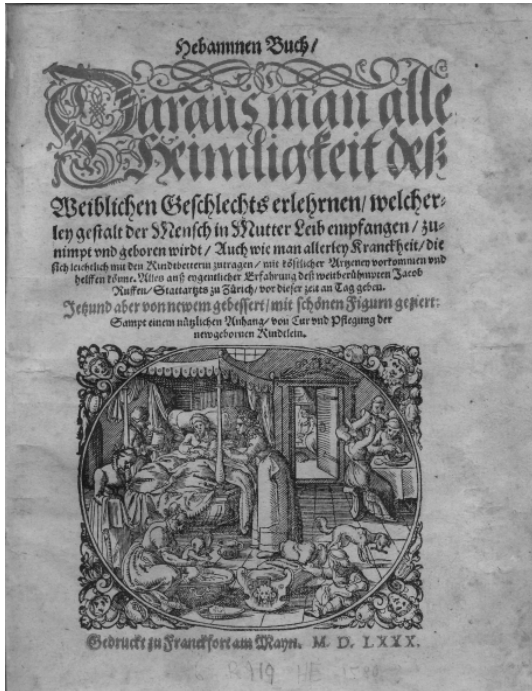 Hebammen Buch/
Daraus man alle
Heimligkeit deß
Weiblichen Geschlechts erlehrnen/ welcher-
ley gestalt der Mensch in Mutter Leib empfangen/ zu-
nimpt vnd geboren wirdt/ Auch wie man allerley Kranckheit/ die
sich leichtlich mit den Kindtbetterin zutragen/ mit köstlicher Artzeney vorkommen vnd
helffen könne. Alles auß eygentlicher Erfahrung deß weitberühmpten Jacob
Ruffen/ Stattartzts zu Zürich/ vor dieser zeit an Tag geben.
Jetzund aber von newem gebessert/ mit schönen Figurn geziert:
Sampt einem nützlichen Anhang/ von Cur vnd Pflegung der
newgebornen Kindtlein.
Gedruckt zu Franckfort am Mayn. M. D. LXXX.